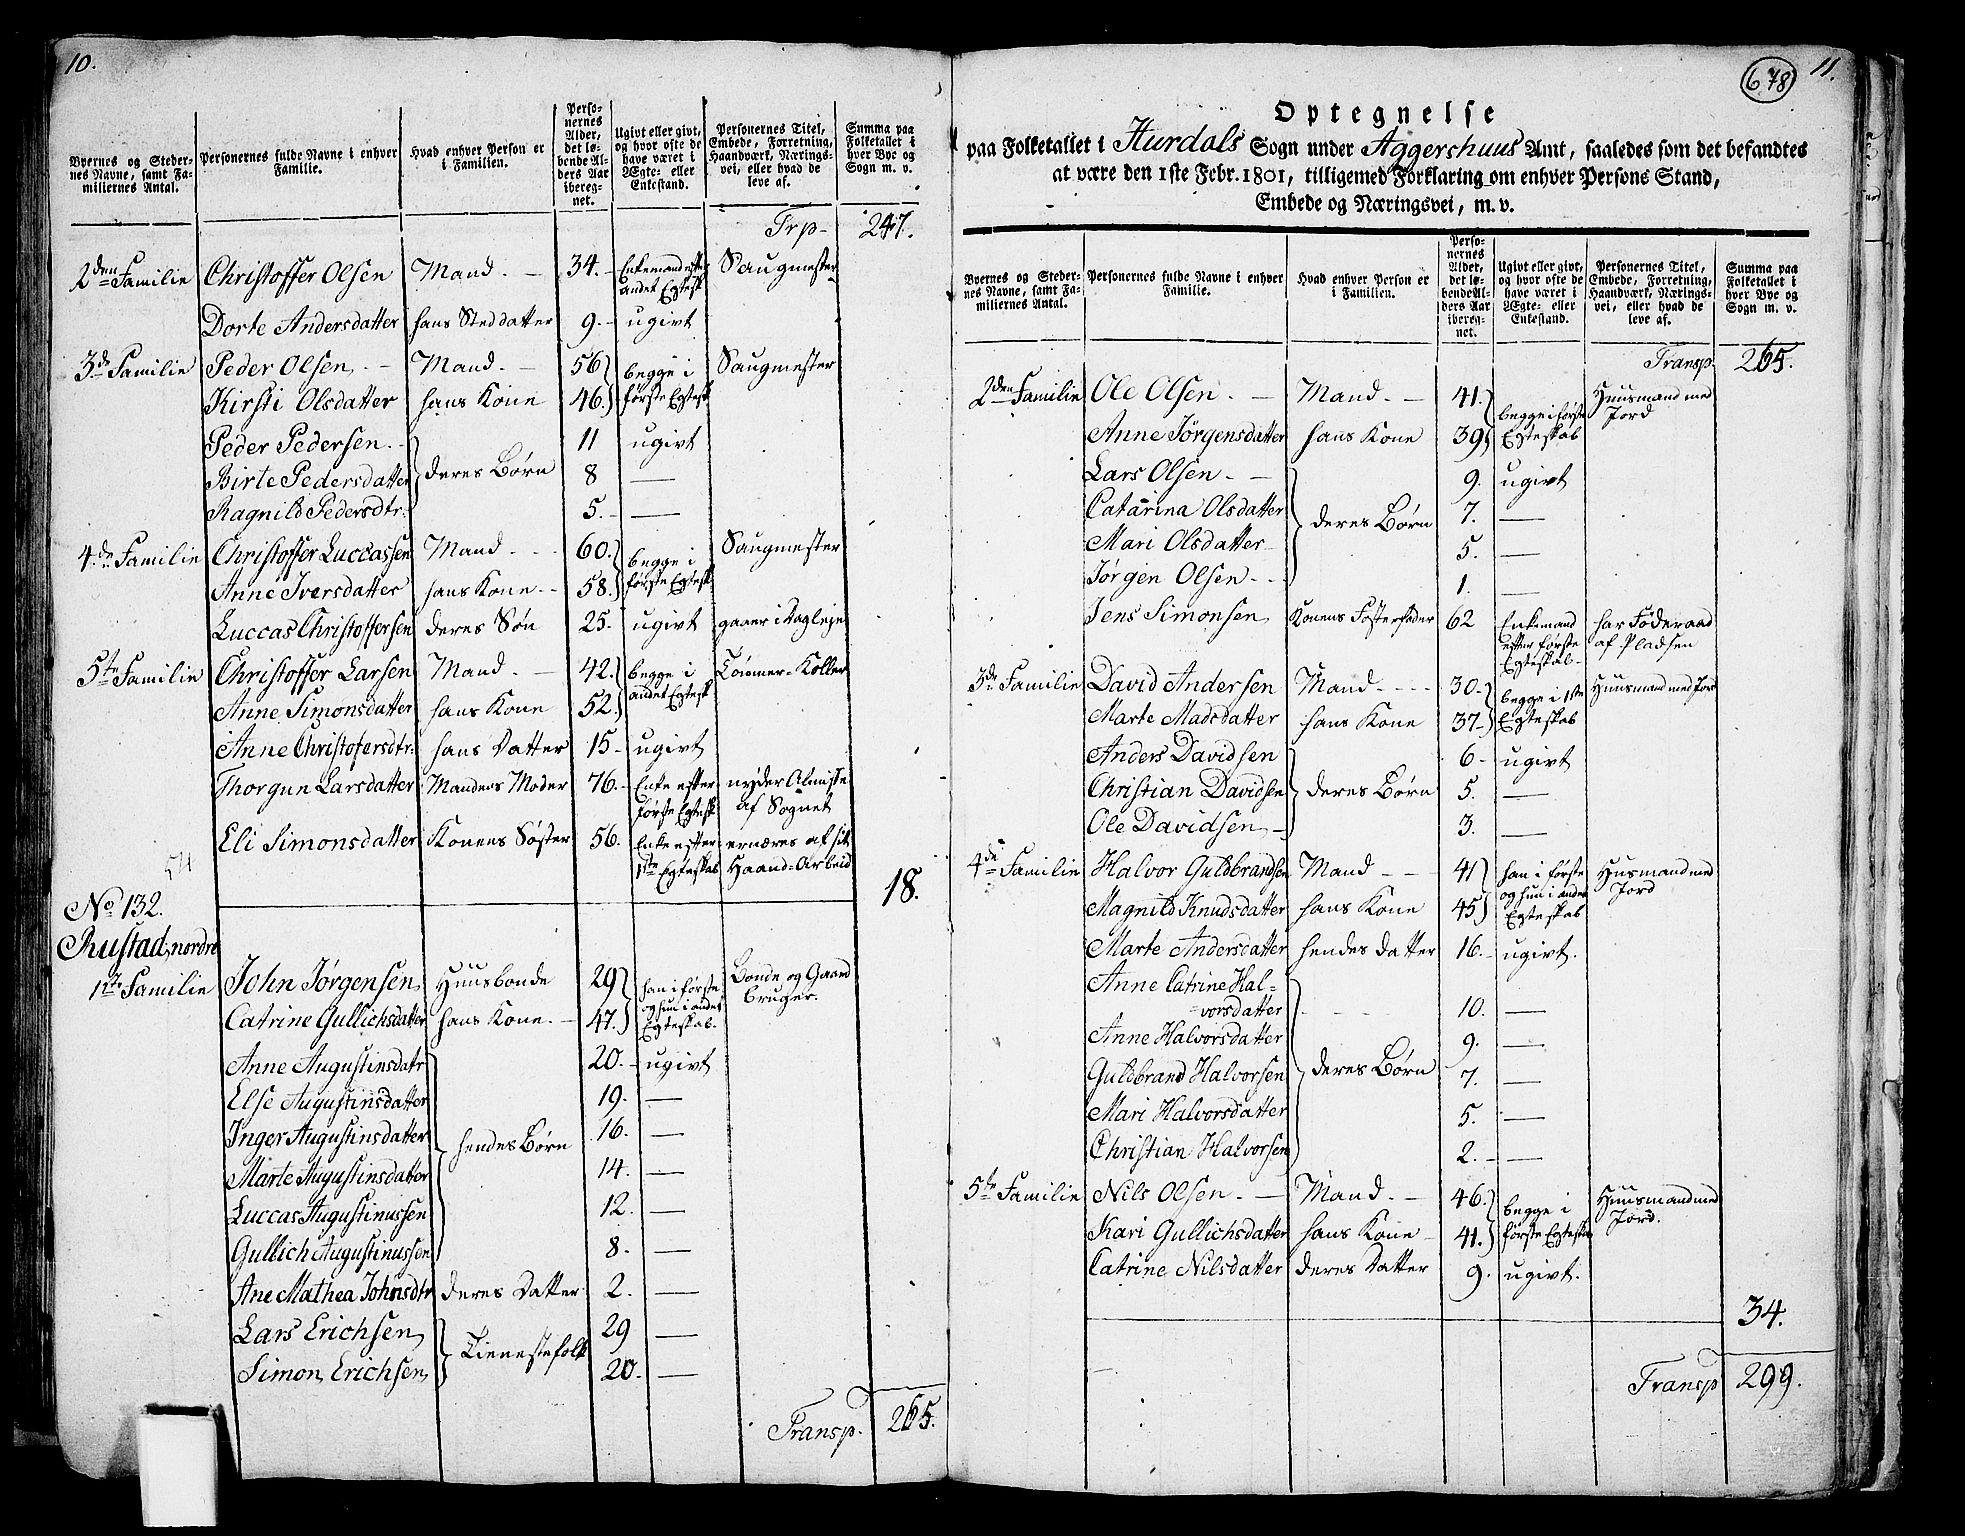 10.
Byernes og Steder-
nes Navne, samt Fa-
miliernes Antal.
Personernes fulde Navne i enhver
Familie.
Hvad enhver Person er
i Familien.
Perso-
nernes
Alder,
det lø-
bende Al-
ders Aar
ibereg-
net.
Ugivt eller givt,
og hvor ofte de
have været i
Ægte- eller
Enkestand.
Personernes Titel,
Embede, Forretning,
Haandværk, Nærings-
vei, eller hvad de
leve af.
Summa paa
Folketallet i
hver Bye og
Sogn m. v.
Trp- 247.
2den Familie Christoffer Olsen Mand. 34. Enkemand efter andet Egtesk. Saugmester
Dorte Andersdatter hans Steddatter 9. ugivt
3de Familie Peder Olsen Mand. 56 begge i Saugmester
Kirsti Olsdatter hans Kone 46. første Egtesk.
Peder Pedersen 11 ugivt
Birte Pedersdatter deres Børn 8 —
Ragnild Pedersdtr. 5. —
4de Familie Christoffer Luccassen Mand 60. begge i Saugmester
Anne Iversdatter hans Kone 58. første Egtesk
Luccas Christoffersen deres Søn 25. ugivt gaaer i Dagleje
5te Familie Christoffer Larsen Mand. 42. begge i Tømmer-Koller
Anne Simonsdatter hans Kone 52. andet Egtesk
Anne Christofersdtr. hans Datter 15 ugivt
Thorgun Larsdatter Mandens Moder 76. Enke efter første Egtesk nyder Almisse af Sognet
Eli Simonsdatter Konens Søster 56. Enke efter 1ste Egteskab ernæres af sit Haand-Arbeid
514
18.
No 132.
Rustad, nordre
1ste Familie John Jørgensen Huusbonde 29 han i første Bonde og Gaard
bruger.
Catrine Gullichsdatter hans Kone 47. og hun i andet Egteskab.
Anne Augustinsdatr 20. ugivt
Else Augustinsdatter 19. —
Inger Augustinsdatter hendes Børn 16. —
Marte Augustinsdatter 14. —
Luccas Augustinussen 12. —
Gullich Augustinussen 8. —
Ane Mathea Johnsdtr deres Datter 2. —
Lars Erichsen Tienestefolk 29 —
Simon Erichsen 20. —
Transp. 265.
678
11.
Optegnelse
paa Folketallet i Hurdals Sogn under Aggershuus Amt, saaledes som det befandtes
at være den 1ste Febr. 1801, tilligemed Forklaring om enhver Persons Stand,
Embede og Næringsvei, m. v.
Byernes og Steder-
nes Navne, samt Fa-
miliernes Antal.
Personernes fulde Navne i enhver
Familie.
Hvad enhver Person er
i Familien.
Perso-
nernes
Alder,
det lø-
bende Al-
ders Aar
ibereg-
net.
Ugivt eller givt,
og hvor ofte de
have været i
Ægte- eller
Enkestand.
Personernes Titel,
Embede, Forretning,
Haandværk, Nærings-
vei, eller hvad de
leve af.
Summa paa
Folketallet i
hver Bye og
Sogn m. v.
Transp. 265.
2den Familie Ole Olsen Mand. 41. begge i første Huusmand med
Jord
Anne Jørgensdatter hans Kone 39 Egteskab
Lars Olsen 9. ugivt
Catarina Olsdatter deres Børn 7. —
Mari Olsdatter 5. —
Jørgen Olsen 1. —
Jens Simonsen Konens Fosterfader 62 Enkemand efter første Egteskab har Føderaad af Pladsen
3de Familie David Andersen Mand 30 begge i 1ste Huusmand med Jord
Marte Madsdatter hans Kone 37 Egteskab
Anders Davidsen 6 ugivt
Christian Davidsen deres Børn 5. —
Ole Davidsen 3. —
4de Familie Halvor Guldbrandsen Mand 41 han i første Husmand med
Jord
Magnild Knudsdatter hans Kone 45 og hun i andet Egteskab
Marte Andersdatter hendes Datter 16. ugivt.
Anne Catrine Hal-
vorsdatter 10. —
Anne Halvorsdatter 9. —
Guldbrand Halvorsen deres Børn 7. —
Mari Halvorsdatter 5. —
Christian Halvorsen 2. —
5te Familie Nils Olsen Mand. 46. begge i Huusmand med
Jord.
Kari Gullichsdatter hans Kone 41. første Egteskab
Catrine Nilsdatter deres Datter 9. ugivt.
34.
Transp 299.